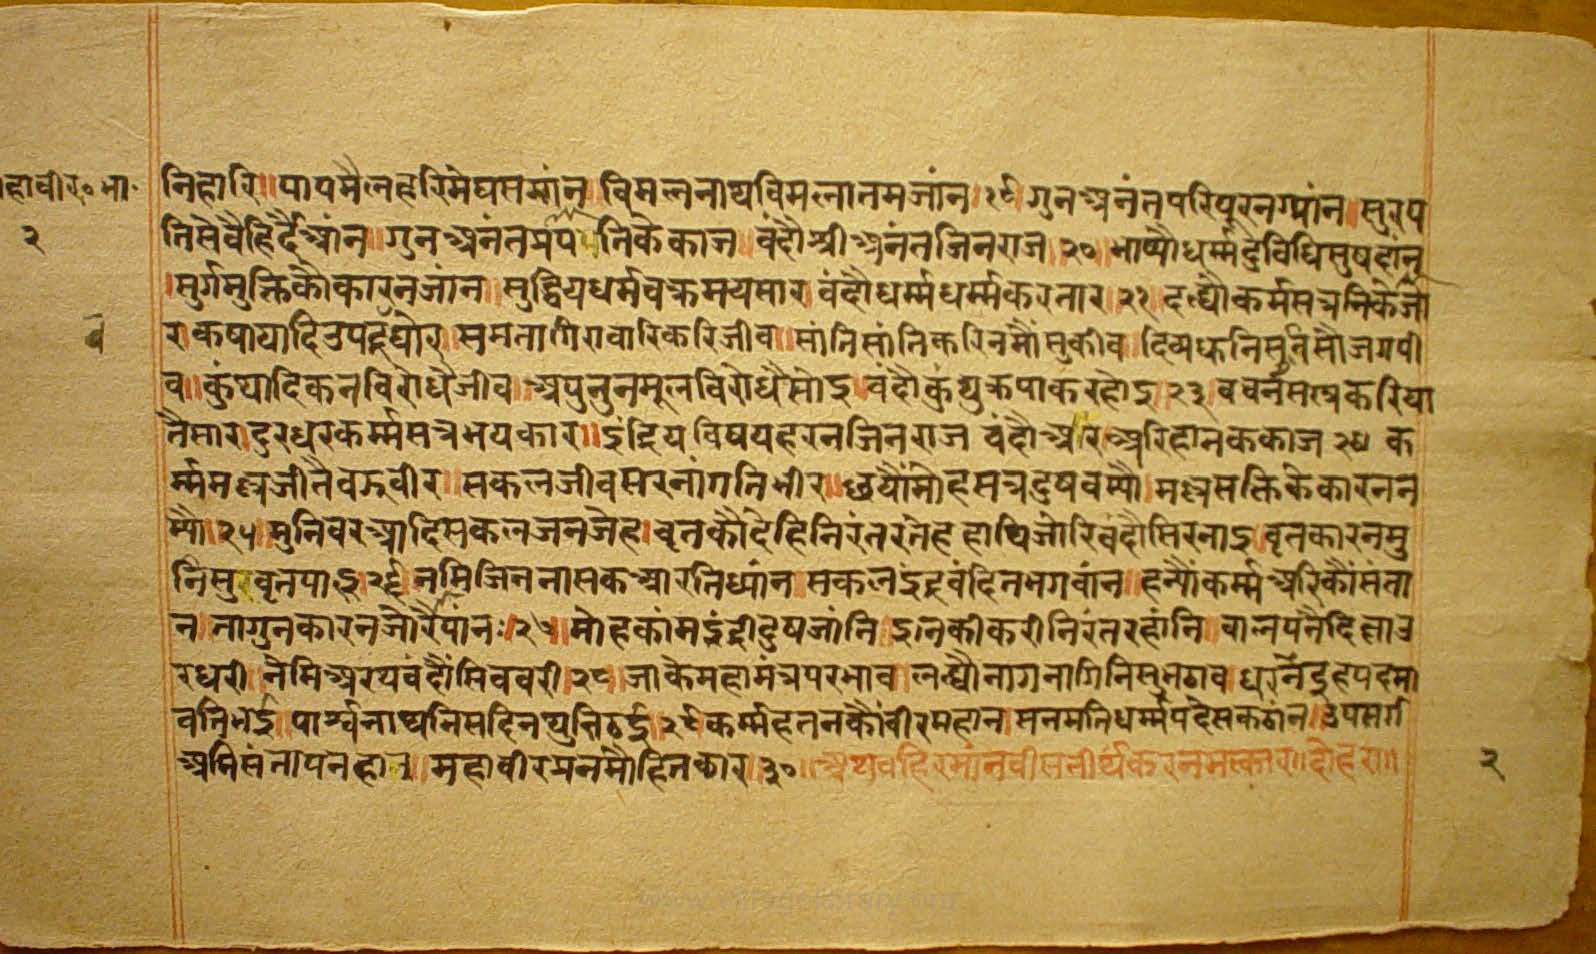 महावीर॰भा॰
२
निहारि॥पापमैलहरिमेघसमांन॥विमलनाथविमलातमजांन॥१९॥गुनअनंतपरिपूरनग्यांन॥सुरप
तिसेवैहिर्दैआंन॥गुनअनंतप्रापपनिकैकाज॥वंदौश्रीअनंतजिनराज॥२०॥भाष्यौधर्म्मदुविधिसुषदांन
॥सुर्गमुक्तिकौकारनजांन॥सुद्धियधर्मचक्रमयसार॥वंदौधर्म्मधर्म्मकरतार॥२१॥दह्यौकर्मसत्रनिकेजो
र॥कषायादिउपद्रवघोर॥समतातीरावारिकरिजीव॥सांतिसांतिकरिनमौंसुकीव॥दिव्यध्वनिसुनंसौजगपी
व॥कुंथादिकनविरोधैजीव॥अपुनुनमूलविरोधैसोइ॥वंदौकुंथुक्रपाकरहोइ॥२३॥ववनसस्त्रकरिया
तैसार॥दुरधरकर्म्मसत्रभयकार॥इंद्रियविषयहरनजिनराज॥वंदौअरिअरिहानककाज॥२४॥क
र्म्ममल्लजीतैवरुवीर॥सकलजीवसरनांगतिभीर॥छयौंमोहसत्रदुषवम्यौ॥मल्लसक्तिकेकारनन
म्यौ॥२५॥मुनिवरआदिसकलजनजेह॥वृतकौंदेहिनिरंतरतेह॥हाथिजोरिवंदौसिरनाइ॥वृतकारनमु
निसुवृतपाइ॥२६॥नमिजिननासकआरतिध्यांन॥सकलइंद्रवंदितभगवांन॥हन्यौंकर्म्मअरिकौंसंता
न॥तागुनकारनजोरैंपांन॥२७॥मोहकांमइंद्रीदुषजांनि॥इनकीकरीनिरंतरहांनि॥बालपनैदिक्षाउ
रधरी॥नेमिअरथवंदौंसिववरी॥२८॥जाकैमहामंत्रपरभाव॥लह्यौनागनागिनिसुभठाव॥धरनेंद्रहपदमा
वतिभई॥पार्श्वनाथनिसदिनथुतिठई॥२९॥कर्म्महतनकौंवीरमहान॥सनमतिधर्म्मपदेसकठांन॥उपसर्ग
अतिसंतापनहान॥महावीरप्रनमौंहितठार॥३०॥अथवहिरमांनवीसतीर्थंकरनमस्कार॥दोहरा॥
२